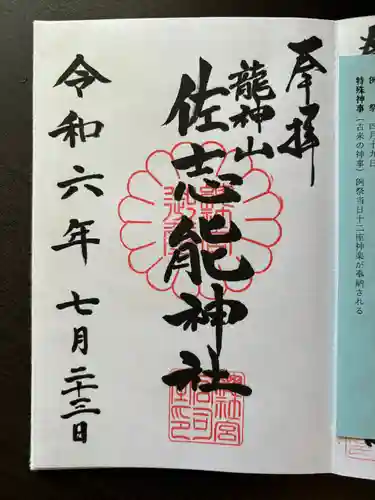 奉拝
龍神山
佐志能神社
令和六年
七月二十三日
例祭 四月十九日
特殊神事(古来の神事)例祭当日十二座神楽が奉納される